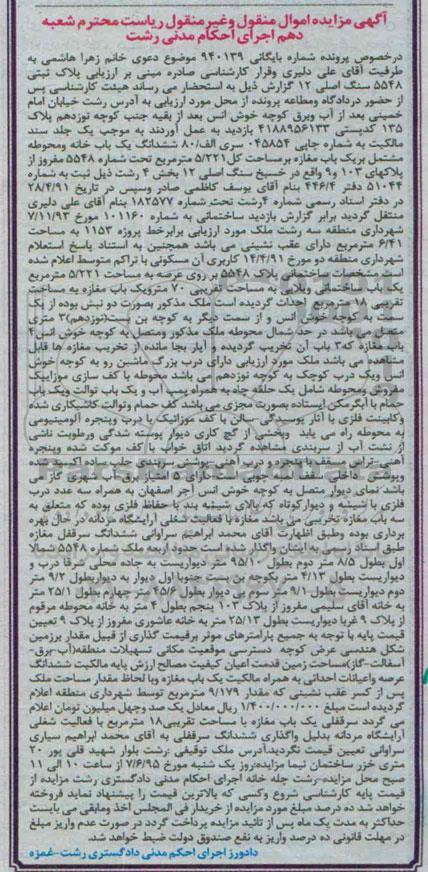 آگهی مزایده اموال منقول وغیرمنقول ریاست محترم شعبه
دهم اجرای احکام مدنی رشت
درخصوص پرونده شماره بایگانی ۹۴۰۱۳۹ موضوع دعوی خانم زهرا هاشمی به
طرفیت آقای علی دلیری وقرار کارشناسی صادره مبنی بر ارزیابی پلاک ثبتی
۵۵۴۸ سنگ اصلی ۱۲ گزارش ذیل به استحضار می رساند هیئت کارشناسی پس
از حضور دردادگاه ومطالعه پرونده از محل مورد ارزیابی به آدرس رشت خیابان امام
خمینی بعد از آب وبرق کوچه خوش انس بعد از بقیه جنب کوچه نوزدهم پلاک
۱۳۵ کدپستی ۴۱۸۸۹۵۶۱۳۳ بازدید به عمل آوردند به موجب یک جلد سند
مالکیت به شماره چاپی ۰۴۵۸۵۴ سری الف/۸۰ ششدانگ یک باب خانه ومحوطه
مشتمل بریک باب مغازه برمساحت کل۵/۲۲۱ مترمربع تحت شماره ۵۵۴۸ مفروز از
پلاکهای ۱۰۳ و۹ واقع در خسبخ سنگ اصلی ۱۲ بخش ۴ رشت ذیل ثبت به شماره
۵۱۰۴۴ دفتر ۴۴۶/۴ بنام آقای یوسف کاظمی صادر وسپس در تاریخ ۲۸/۴/۹۱
در دفتر اسناد رسمی شماره ۴رشت تحت شماره ۱۸۲۵۷۷ بنام آقای علی دلیری
منتقل گردید برابر گزارش بازدید ساختمانی به شماره ۱۰۱۱۶۰ مورخ ۷/۱۱/۹۳
شهرداری منطقه سه رشت ملک مورد ارزیابی برابرخط پروژه ۱۱۵۳ به مساحت
۶/۴۱ مترمربع دارای عقب نشینی می باشد همچنین به استناد پاسخ استعلام
شهرداری منطقه دو مورخ ۱۴/۴/۹۱ کاربری آن مسکونی با تراکم متوسط اعلام شده
است مشخصات ساختمانی پلاک ۵۵۴۸ بر روی عرصه به مساحت ۵/۲۲۱ مترمربع
یک باب ساختمانی ویلایی به مساحت تقریبی ۷۰ مترویک باب مغازه به مساحت
تقریبی ۱۸ مترمربع احداث گردیده است ملک مذکور بصورت دو نبش بوده از یک
سمت به کوچه خوش انس و از سمت دیگر به کوچه بن بست(نوزدهم)۳ متری
متصل می باشد در حد شمال محوطه ملک مذکور ومتصل به کوچه خوش انس۴
باب مغازه که۳ باب آن تخریب گردیده و آثار بجا مانده از تخریب مغازه ها قابل
مشاهده می باشد ملک مورد ارزیابی دارای درب بزرگ ماشین رو به کوچه خوش
انس ویک درب کوچک به کوچه نوزدهم می باشد محوطه با کف سازی موزاییک
مفروش ومحوطه شامل یک حلقه چاه به همراه پمپ آب و یک باب توالت ویک باب
حمام با آبگرمکن ایستاده بصورت مجزی می باشد کف حمام وتوالت کاشیکاری شده
وکابینت فلزی با آثار پوسیدگی-سالن با کف موزائیک با درب وپنجره آلومینیومی
به محوطه راه می یابد وبخشی از گچ کاری دیوار پوسته شدگی ورطوبت ناشی
از نشت آب از سربندی مشاهده گردید اتاق خواب با کف موکت شده وپنجره
آهنی-تراس مسقف با پنجره و درب آهنی-پوشش سربندی حلب ساده اکسید شده
وپوشش داخلی سقف لمبه چوبی است دارای ۵ امتیاز برق آب شهری گاز می
باشد نمای دیوار متصل به کوچه خوش انس آجر اصفهان به همراه سه عدد درب
فلزی با شیشه و دیوارکوتاه که بالای شیشه بند با حفاظ فلزی بوده که متعلق به
سه باب مغازه تخریبی می باشد مغازه با فعالیت شغلی آرایشگاه مردانه در حال بهره
برداری بوده وطبق اظهارت آقای محمد ابراهیم سراوانی ششدانگ سرقفل مغازه
طبق اسناد رسمی به ایشان واگذار شده است حدود اربعه ملک شماره ۵۵۴۸ شمالا
اول بطول ۸/۵ متر دوم بطول ۹۵/۱۰ متر دیواریست به جاده محلی شرقا درب و
دیواریست بطول ۴/۱۳ متر بکوچه بن بست جنوبا اول دیوار به دیواربطول ۹/۲ متر
دوم دیواریست بطول ۹/۱ متر سوم پی دیوار بطول ۴۵/۶ متر چهارم بطول ۲۵/۱ متر
به خانه آقای سلیمی مفروز از پلاک ۱۰۳ پنجم بطول ۴ متر به خانه محوطه مرقوم
از پلاک ۹ غربا دیواریست بطول ۲۵/۱۳ متر به خانه عاشوری مفروز از پلاک ۹ تعیین
قیمت پایه با توجه به جمیع پارامترهای موثر برقیمت گذاری از قبیل مقدار برزمین
شکل هندسی عرض کوچه دسترسی موقعیت مکانی تسهیلات منطقه(آب-برق-
آسفالت-گاز)مساحت زمین قدمت اعیان کیفیت مصالح ارزش پایه مالکیت ششدانگ
عرصه واعیانات احداثی به همراه مالکیت یک باب مغازه وبا لحاظ مقدار مساحت ملک
پس از کسر عقب نشینی که مقدار ۹/۱۷۹ مترمربع توسط شهرداری منطقه اعلام
گردیده است مبلغ ۱/۴۰۰/۰۰۰/۰۰۰ ریال معادل یک صد وچهل میلیون تومان اعلام
می گردد سرقفلی یک باب مغازه با مساحت تقریبی۱۸ مترمربع با فعالیت شغلی
آرایشگاه مردانه بدلیل واگذاری ششدانگ سرقفلی به آقای محمد ابراهیم سیاری
سراوانی تعیین قیمت نگردید.آدرس ملک توقیفی :رشت بلوار شهید قلی پور ۲۰
متری خزر ساختمان نیما مزایده:روز یک شنبه مورخ ۷/۶/۹۵ از ساعت ۱۰ الی ۱۱
صبح محل مزایده-رشت جله خانه اجرای احکام مدنی دادگستری رشت مزایده از
قیمت پایه کارشناسی شروع وکسی که بالاترین قیمت را پیشنهاد نماید فروخته
خواهد شد ده درصد مبلغ مورد مزایده از خریدار فی المجلس اخذ ومابقی می بایست
حداکثر به مدت یک ماه پس از تائید مزایده پرداخت گردد در صورت عدم واریز مبلغ
در مهلت قانونی ده درصد واریز به نفع صندوق دولت ضبط خواهد شد.
دادورز اجرای احکم مدنی دادگستری رشت-غمزه